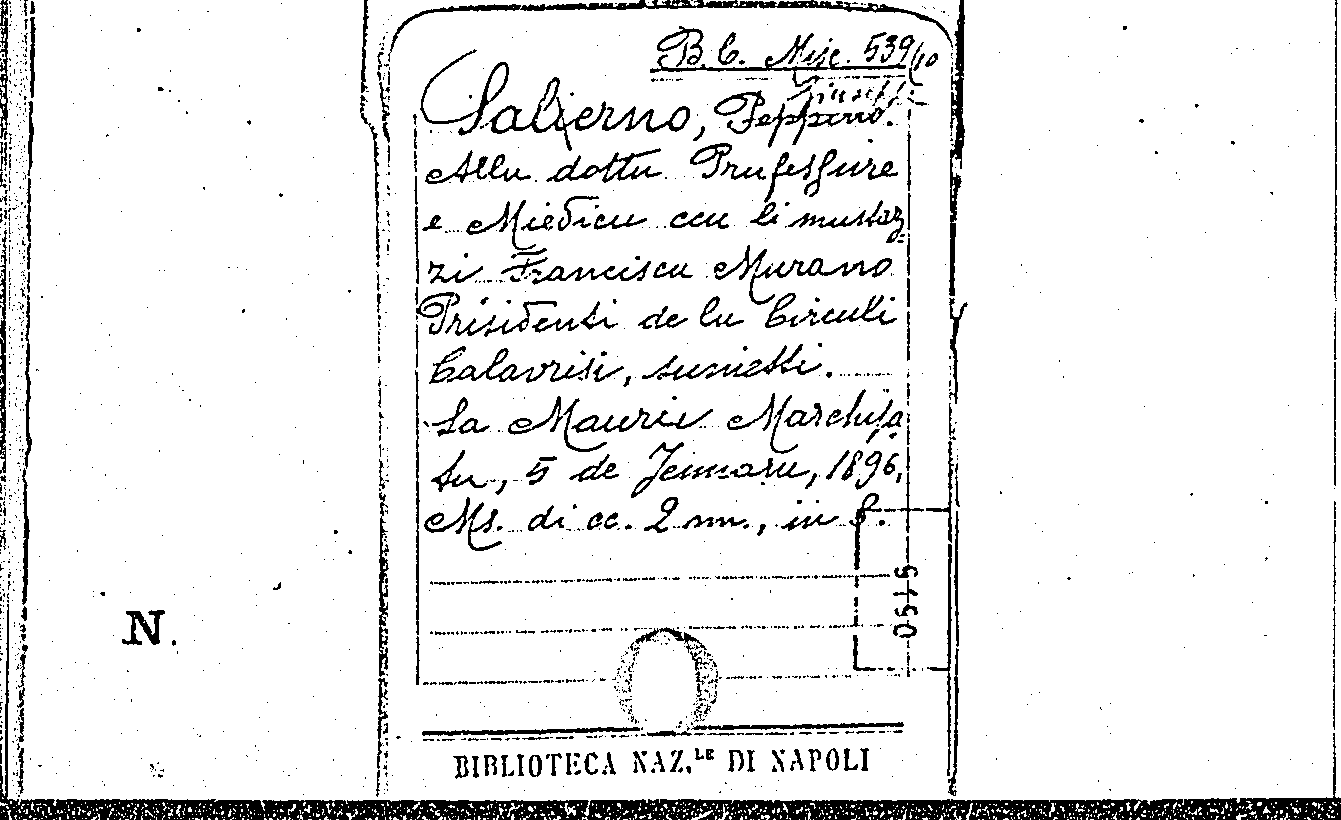 B. C. Misc. 539/10
Giuseppe
Salierno, Peppino.
Allu dottu Prufessure
e Miedicu ccu li mustaz-
zi Franciscu Murano
Prisidenti de lu Circuli
Calavrisi, sunietti.
La Mauric Marchisa
tu, 5 de Jennaru, 1896.
Ms. di cc. 2 nn., in f.
0515
N.
BIBLIOTECA NAZ.LE DI NAPOLI